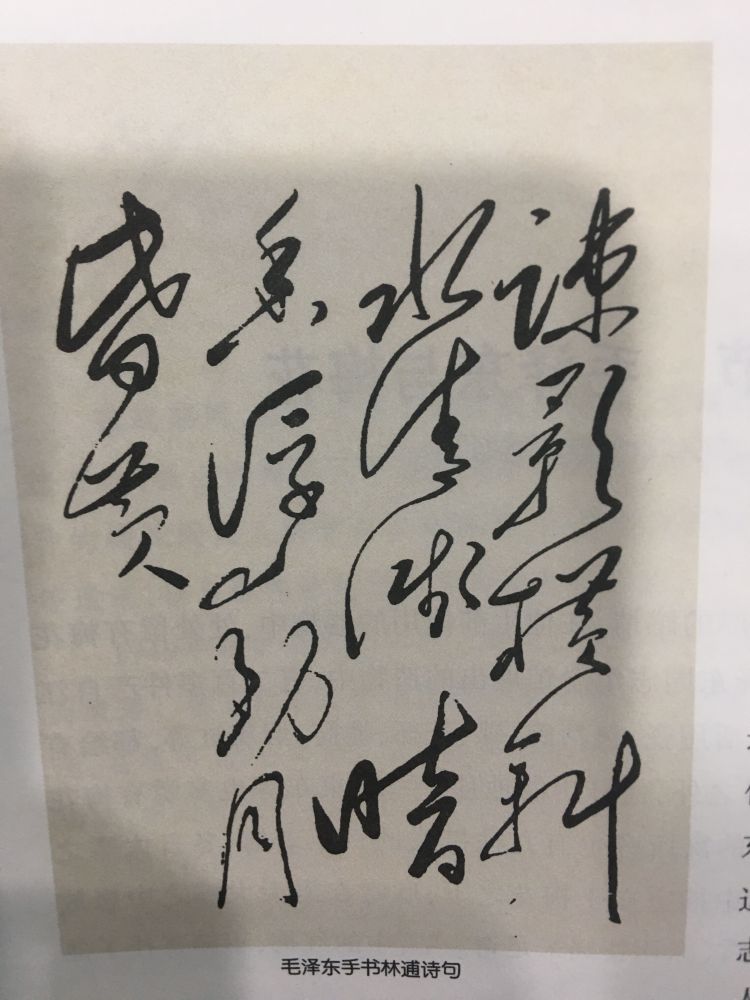 疎影横斜
水清浅暗
香浮动月
昏黄
毛泽东手书林逋诗句